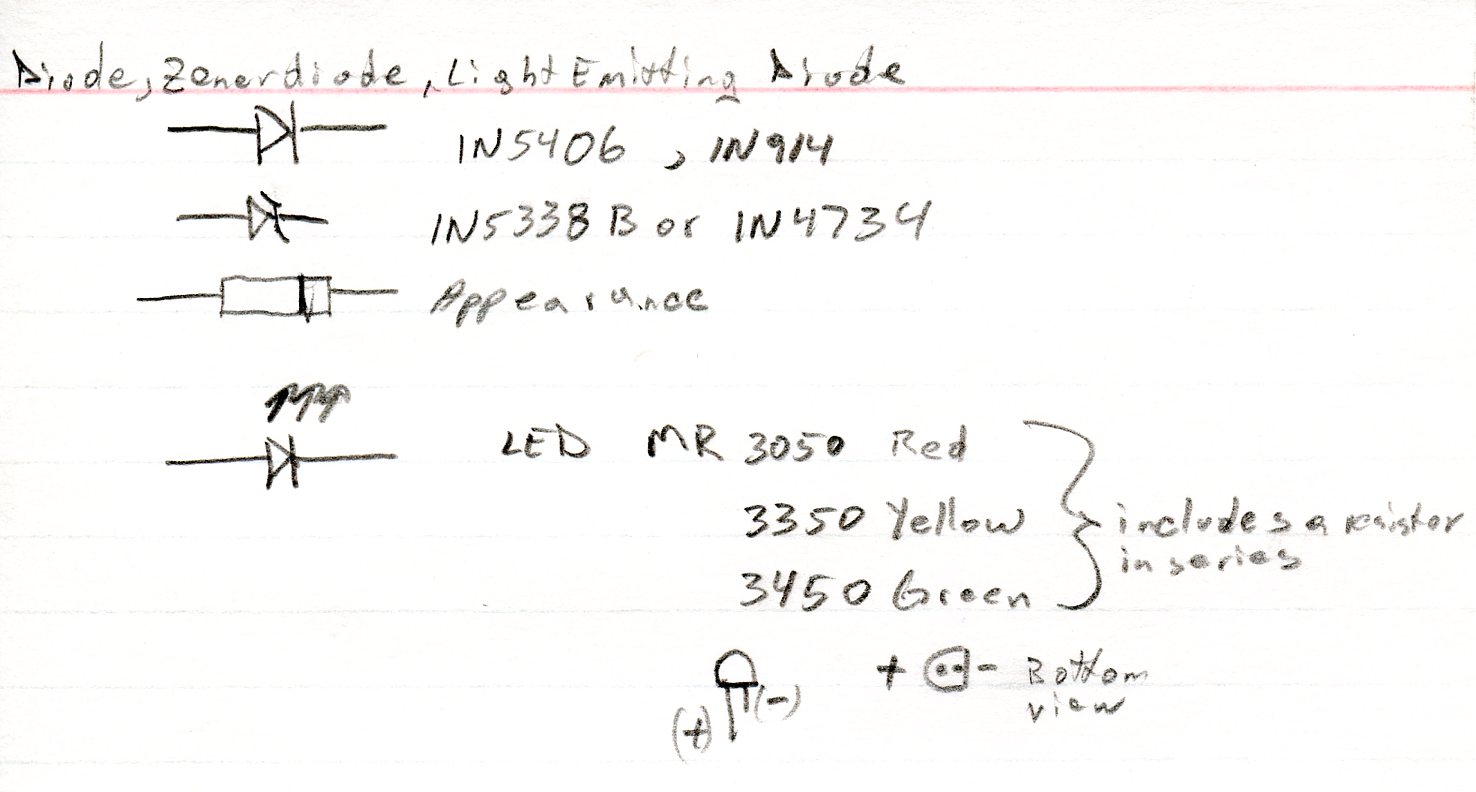 Diode, Zener diode, Light Emitting Diode
1N5406 , 1N914
1N5338B or 1N4734
Appearance
LED MR 3050 Red
3350 Yellow
3450 Green
includes a resistor
in series
(+) (-)
+ - Bottom
view